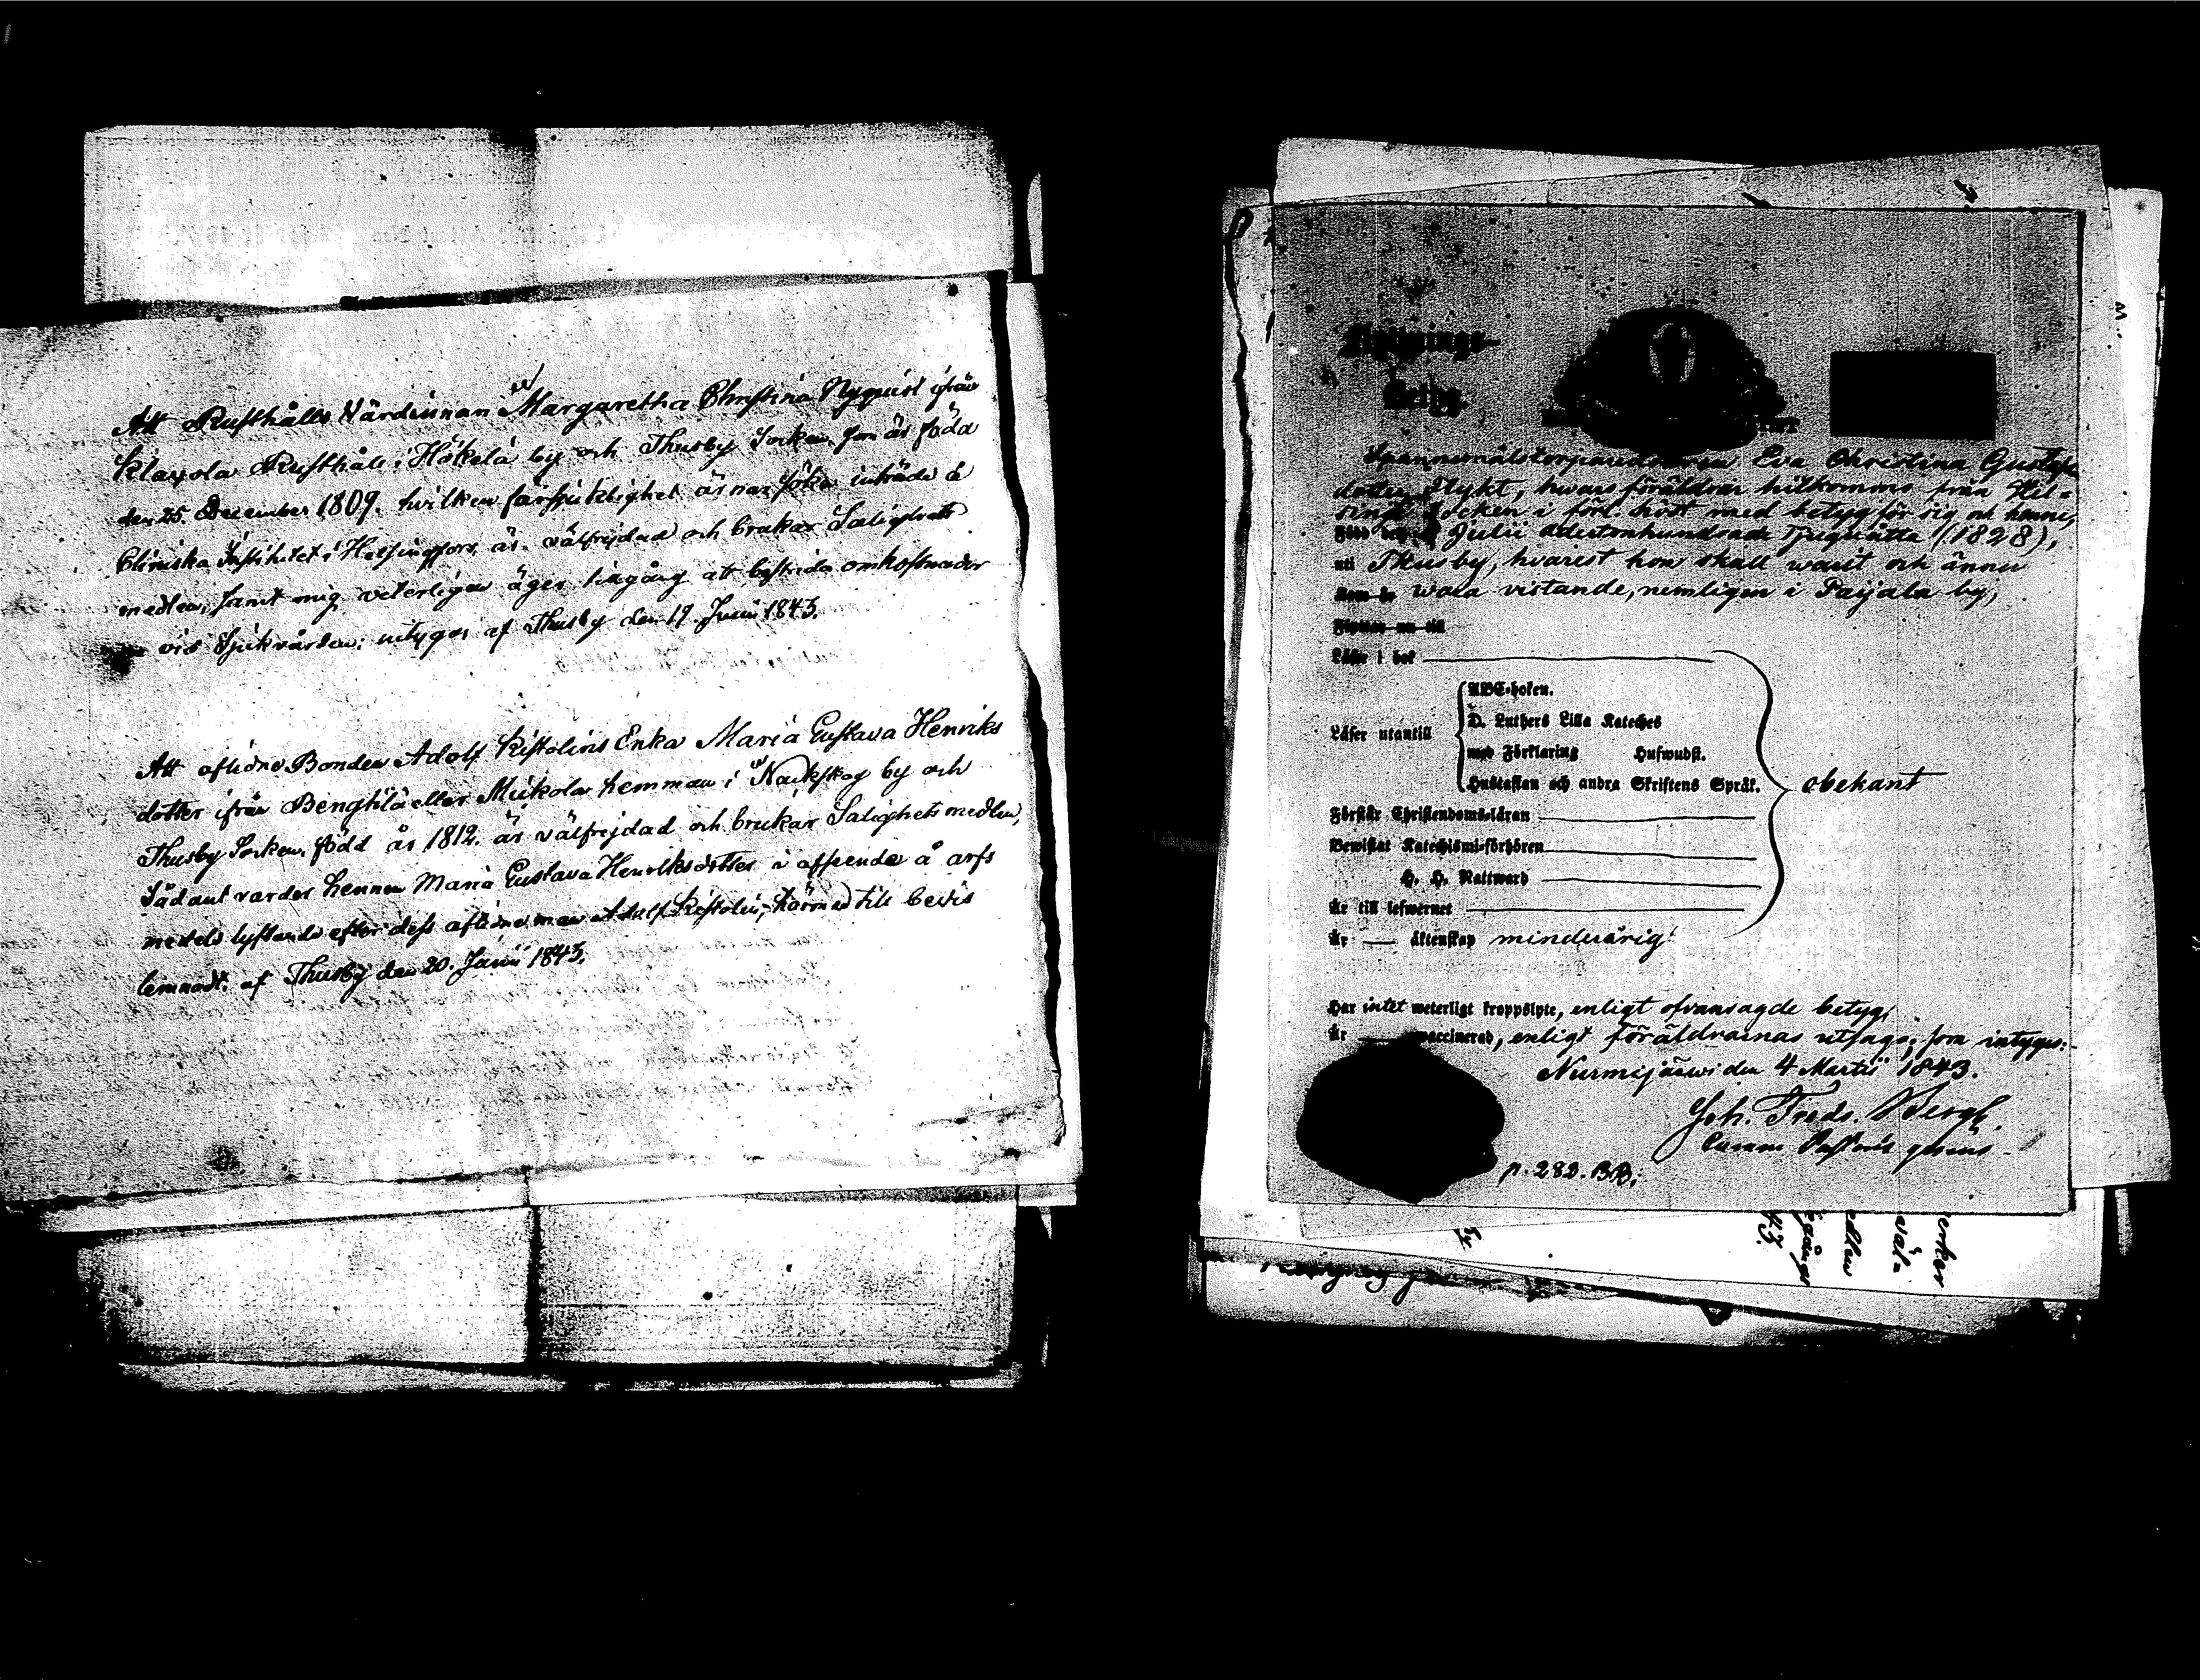 Att Rusthålls Värdinnan Margaretha Christina Nyquist ifrån
Klaxola Rusthåll i Hökelä by och Thusby Socken, som är född
den 25. December 1809. hvilken för sjuklighet ärnar söka inträde å
Cliniska Institutet i Helsingfors, är välfrejdad och brukar Salighets
medlen, samt mig veterligen äger tillgång att bestrida omkostnader
vid Sjukvården; intygas af Thusby den 19. Junii 1843.
Att aflidne Bonden Adolf Kistolins Enka Maria Gustava Henriks
dotter ifrån Bengtilä eller Mickola hemman i Nackskog by och
Thusby Socken, född år 1812. är välfrejdad och brukar Salighets medlen,
Sådant varder hennen Maria Gustava Henriksdotter i afseende å arfs
medels lyftande efter dess aflidne man Adolf Kistolin, härmed till bevis
lemnadt. af Thusby den 20. Junii 1843.
Flyttnings-
Betyg.
Spannemålstorparedotteren Eva Christina Gustafs
dotter Flykt, hvars föräldrar hitkommo från Hel-
singe Socken i förl. höst med betyg för sig och henne,
Född den Julii Adertonhundrade Tjuguåtta (1828),
uti Thusby, hvarest hon skall warit och ännu
som är wara vistande, nemligen i Paijala by,
Flyttar nu till
Läser i bok
ABC-boken.
D. Luthers Lilla Kateches
Läser utantill
med Förklaring Husiwudst.
Hustaflan och andra Skriftens Språk.
obekant
Förstår Christendoms-läran
Bewistat Katechismi-förhören
H. H. Nattward
Är till lefwernet
Är — äktenskap minderårig
Har intet weterligt kroppslyte, enligt ofvansagde betyg,
Är vaccinerad, enligt föräldrarnas utsago; som intygas:
Nurmijärwi den 4 Martii 1843.
Joh. Fredr. Bergh.
p. 282. BB;